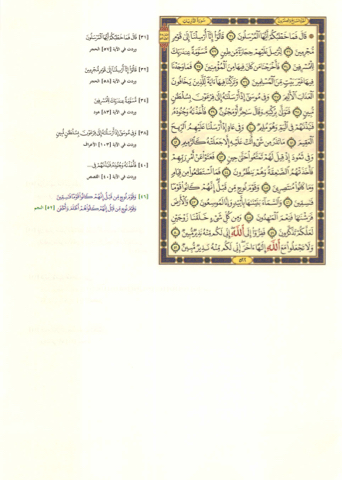 سورة الذاريات
قَالَ فَمَا خَطْبُكُمْ أَيُّهَا الْمُرْسَلُونَ ٣١ قَالُوا إِنَّا أُرْسِلْنَا إِلَىٰ قَوْمٍ
مُّجْرِمِينَ ٣٢ لِنُرْسِلَ عَلَيْهِمْ حِجَارَةً مِّن طِينٍ ٣٣ مُّسَوَّمَةً عِندَ رَبِّكَ
لِلْمُسْرِفِينَ ٣٤ فَأَخْرَجْنَا مَن كَانَ فِيهَا مِنَ الْمُؤْمِنِينَ ٣٥ فَمَا وَجَدْنَا
فِيهَا غَيْرَ بَيْتٍ مِّنَ الْمُسْلِمِينَ ٣٦ وَتَرَكْنَا فِيهَا آيَةً لِّلَّذِينَ يَخَافُونَ
الْعَذَابَ الْأَلِيمَ ٣٧ وَفِي مُوسَىٰ إِذْ أَرْسَلْنَاهُ إِلَىٰ فِرْعَوْنَ بِسُلْطَانٍ
مُّبِينٍ ٣٨ فَتَوَلَّىٰ بِرُكْنِهِ وَقَالَ سَاحِرٌ أَوْ مَجْنُونٌ ٣٩ فَأَخَذْنَاهُ وَجُنُودَهُ
فَنَبَذْنَاهُمْ فِي الْيَمِّ وَهُوَ مُلِيمٌ ٤٠ وَفِي عَادٍ إِذْ أَرْسَلْنَا عَلَيْهِمُ الرِّيحَ
الْعَقِيمَ ٤١ مَا تَذَرُ مِن شَيْءٍ أَتَتْ عَلَيْهِ إِلَّا جَعَلَتْهُ كَالرَّمِيمِ ٤٢
وَفِي ثَمُودَ إِذْ قِيلَ لَهُمْ تَمَتَّعُوا حَتَّىٰ حِينٍ ٤٣ فَعَتَوْا عَنْ أَمْرِ رَبِّهِمْ
فَأَخَذَتْهُمُ الصَّاعِقَةُ وَهُمْ يَنظُرُونَ ٤٤ فَمَا اسْتَطَاعُوا مِن قِيَامٍ
وَمَا كَانُوا مُنتَصِرِينَ ٤٥ وَقَوْمَ نُوحٍ مِّن قَبْلُ إِنَّهُمْ كَانُوا قَوْمًا
فَاسِقِينَ ٤٦ وَالسَّمَاءَ بَنَيْنَاهَا بِأَيْيدٍ وَإِنَّا لَمُوسِعُونَ ٤٧ وَالْأَرْضَ
فَرَشْنَاهَا فَنِعْمَ الْمَاهِدُونَ ٤٨ وَمِن كُلِّ شَيْءٍ خَلَقْنَا زَوْجَيْنِ
لَعَلَّكُمْ تَذَكَّرُونَ ٤٩ فَفِرُّوا إِلَى اللَّهِ إِنِّي لَكُم مِّنْهُ نَذِيرٌ مُّبِينٌ ٥٠
وَلَا تَجْعَلُوا مَعَ اللَّهِ إِلَٰهًا آخَرَ إِنِّي لَكُم مِّنْهُ نَذِيرٌ مُّبِينٌ ٥١
[٣١] قَالَ فَمَا خَطْبُكُمْ أَيُّهَا الْمُرْسَلُونَ
وردت في الآية [٥٧] الحجر
[٣٢] قَالُوا إِنَّا أُرْسِلْنَا إِلَىٰ قَوْمٍ مُّجْرِمِينَ
وردت في الآية [٥٨] الحجر
[٣٤] مُّسَوَّمَةً عِندَ رَبِّكَ لِلْمُسْرِفِينَ
وردت في الآية [٨٣] هود
[٣٨] وَفِي مُوسَىٰ إِذْ أَرْسَلْنَاهُ إِلَىٰ فِرْعَوْنَ بِسُلْطَانٍ مُّبِينٍ
وردت في الآية [١٠٣] الأعراف
[٤٠] فَأَخَذْنَاهُ وَجُنُودَهُ فَنَبَذْنَاهُمْ فِي...
وردت في الآية [٤٠] القصص
[٤٦] وَقَوْمَ نُوحٍ مِّن قَبْلُ إِنَّهُمْ كَانُوا قَوْمًا فَاسِقِينَ
وَقَوْمَ نُوحٍ مِّن قَبْلُ إِنَّهُمْ كَانُوا هُمْ أَظْلَمَ وَأَطْغَىٰ [٥٢] النجم